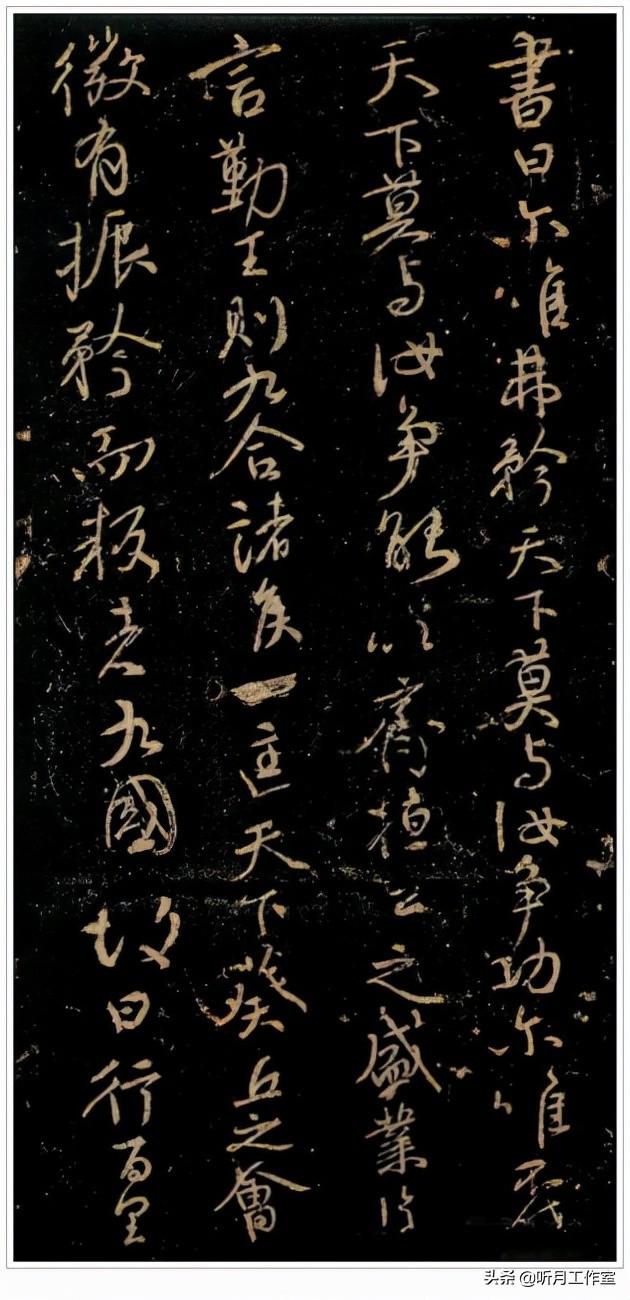 書曰尔唯弗矜天下莫与汝争功尔唯不伐
天下莫与汝争能以齊桓公之盛業片
言勤王則九合諸侯一匡天下葵丘之會
微有振矜而叛者九國故曰行百里
头条 @听月工作室